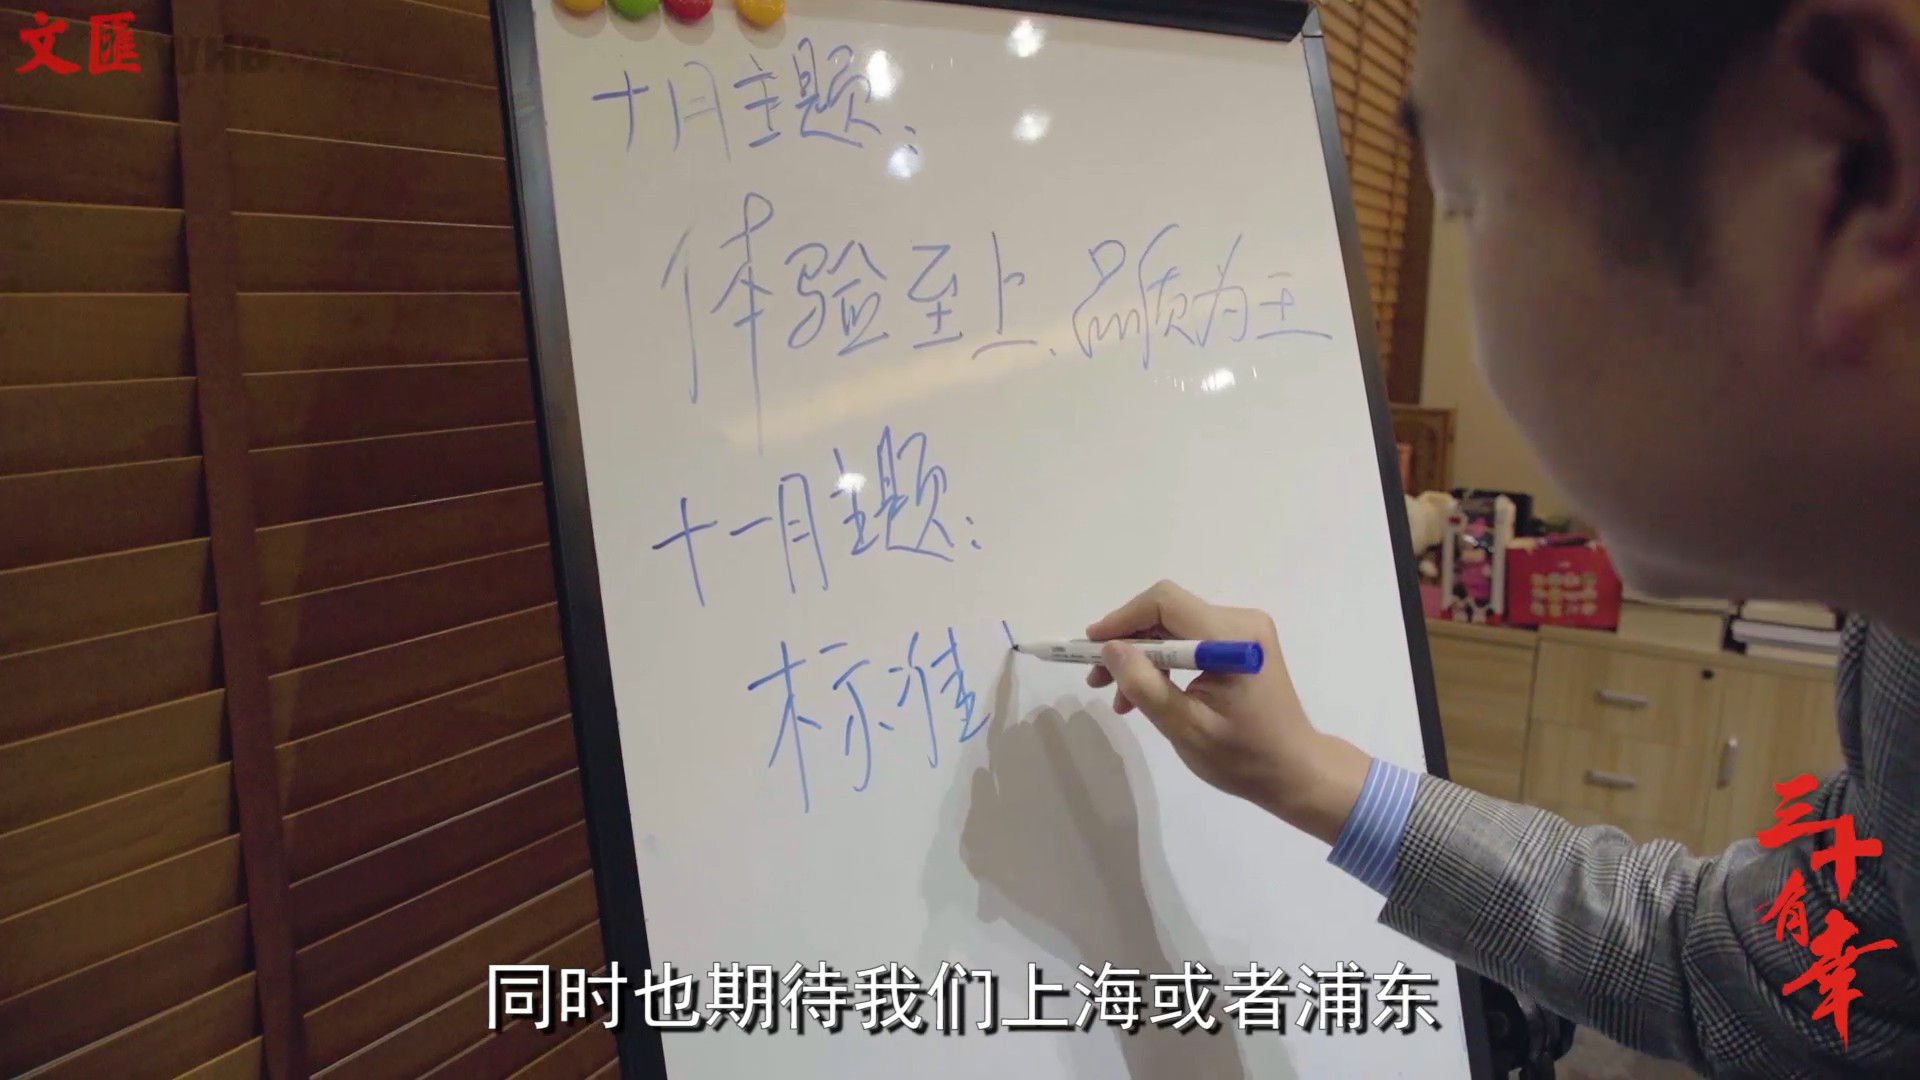 文匯
WHB
十月主题:
体验至上、品质为主
十一月主题:
标准
三十有幸
同时也期待我们上海或者浦东